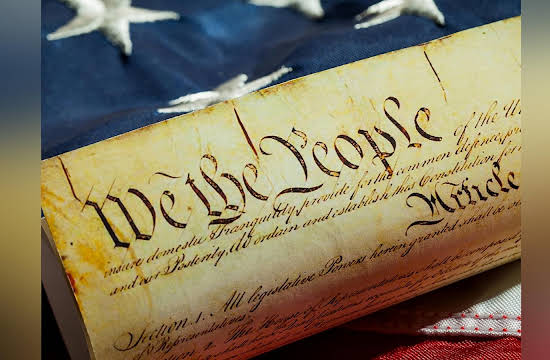 We the People of the
insure domestic Tranquility, provide for the common defence,
and our Posterity, do ordain and establish this Constitution for
Article
Section. 1. All legislative Powers herein granted shall be
of Representatives.
The House of Representatives shall be composed